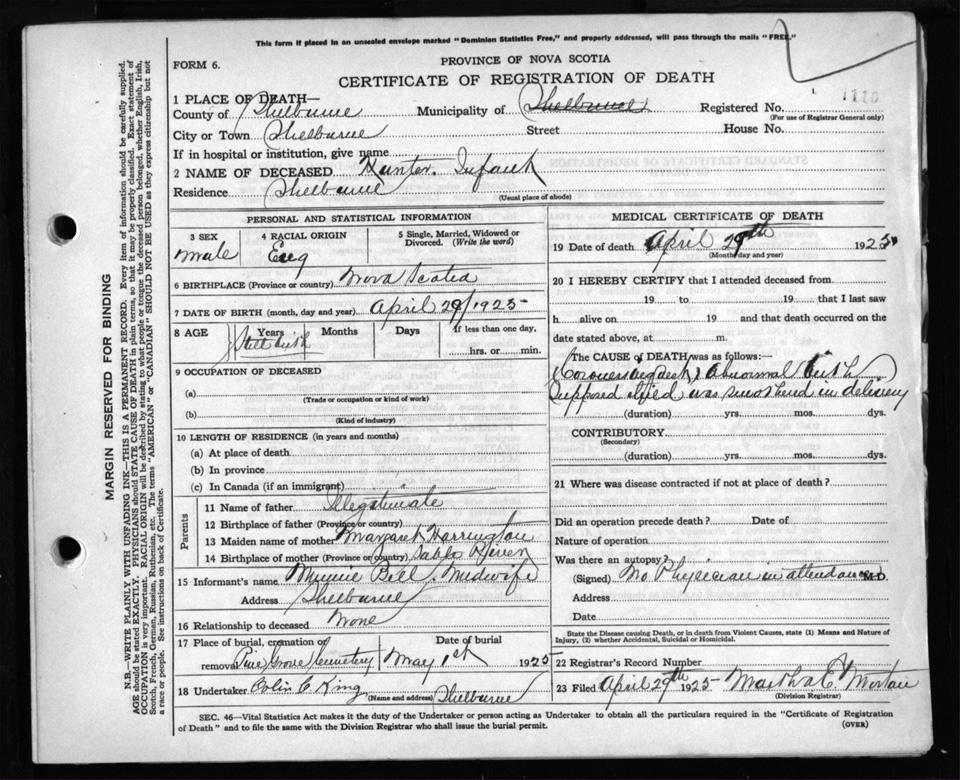 This form if placed in an unsealed envelope marked "Dominion Statistics Free," and properly addressed, will pass through the mails "FREE."
FORM 6.
PROVINCE OF NOVA SCOTIA
CERTIFICATE OF REGISTRATION OF DEATH
1 PLACE OF DEATH—
County of Shelburne Municipality of Shelburne Registered No.
(For use of Registrar General only)
City or Town Shelburne Street House No.
If in hospital or institution, give name
2 NAME OF DECEASED Hunter. Infant
Residence Shelburne
(Usual place of abode)
PERSONAL AND STATISTICAL INFORMATION
3 SEX 4 RACIAL ORIGIN 5 Single, Married, Widowed or Divorced. (Write the word)
male Eng
6 BIRTHPLACE (Province or country) Nova Scotia
7 DATE OF BIRTH (month, day and year) April 29/1925
8 AGE Years Months Days If less than one day,
Still birth hrs. or min.
9 OCCUPATION OF DECEASED
(a)
(Trade or occupation or kind of work)
(b)
(Kind of industry)
10 LENGTH OF RESIDENCE (in years and months)
(a) At place of death
(b) In province
(c) In Canada (if an immigrant)
Parents
11 Name of father Illegitimate
12 Birthplace of father (Province or country)
13 Maiden name of mother Margaret Harrington
14 Birthplace of mother (Province or country) Sable River
15 Informant's name Minnie Bell. Midwife
Address Shelburne
16 Relationship to deceased None
17 Place of burial, cremation or removal Date of burial
Pine Grove Cemetery May 1st 1925
18 Undertaker Colin C King (Name and address) Shelburne
MEDICAL CERTIFICATE OF DEATH
19 Date of death April 29th 1925
(Month, day and year)
20 I HEREBY CERTIFY that I attended deceased from
19 to 19 that I last saw
h alive on 19 and that death occurred on the
date stated above, at m.
The CAUSE OF DEATH was as follows:—
Abnormal birth
Supposed child was smothered in delivery
(duration) yrs. mos. dys.
CONTRIBUTORY
(Secondary)
(duration) yrs. mos. dys.
21 Where was disease contracted if not at place of death?
Did an operation precede death? Date of
Nature of operation
Was there an autopsy?
(Signed) No Physician in attendance M.D.
Address
Date
State the Disease causing Death, or in death from Violent Causes, state (1) Means and Nature of
Injury, (2) whether Accidental, Suicidal or Homicidal.
22 Registrar's Record Number
23 Filed April 29th 1925 Martha E
(Division Registrar)
SEC. 46—Vital Statistics Act makes it the duty of the Undertaker or person acting as Undertaker to obtain all the particulars required in the "Certificate of Registration
of Death" and to file the same with the Division Registrar who shall issue the burial permit.
(OVER)
MARGIN RESERVED FOR BINDING
N.B.—WRITE PLAINLY WITH UNFADING INK—THIS IS A PERMANENT RECORD. Every item of information should be carefully supplied.
AGE should be stated EXACTLY. PHYSICIANS should STATE CAUSE OF DEATH in plain terms, so that it may be properly classified. Exact statement of
OCCUPATION is very important. RACIAL ORIGIN will be described by stating to what people or tongue the deceased person belonged, whether English, Irish,
Scotch, French, German, Russian, Ruthenian, etc. The terms "AMERICAN" or "CANADIAN" SHOULD NOT BE USED as they express citizenship but not
a race or people. See instructions on back of Certificate.